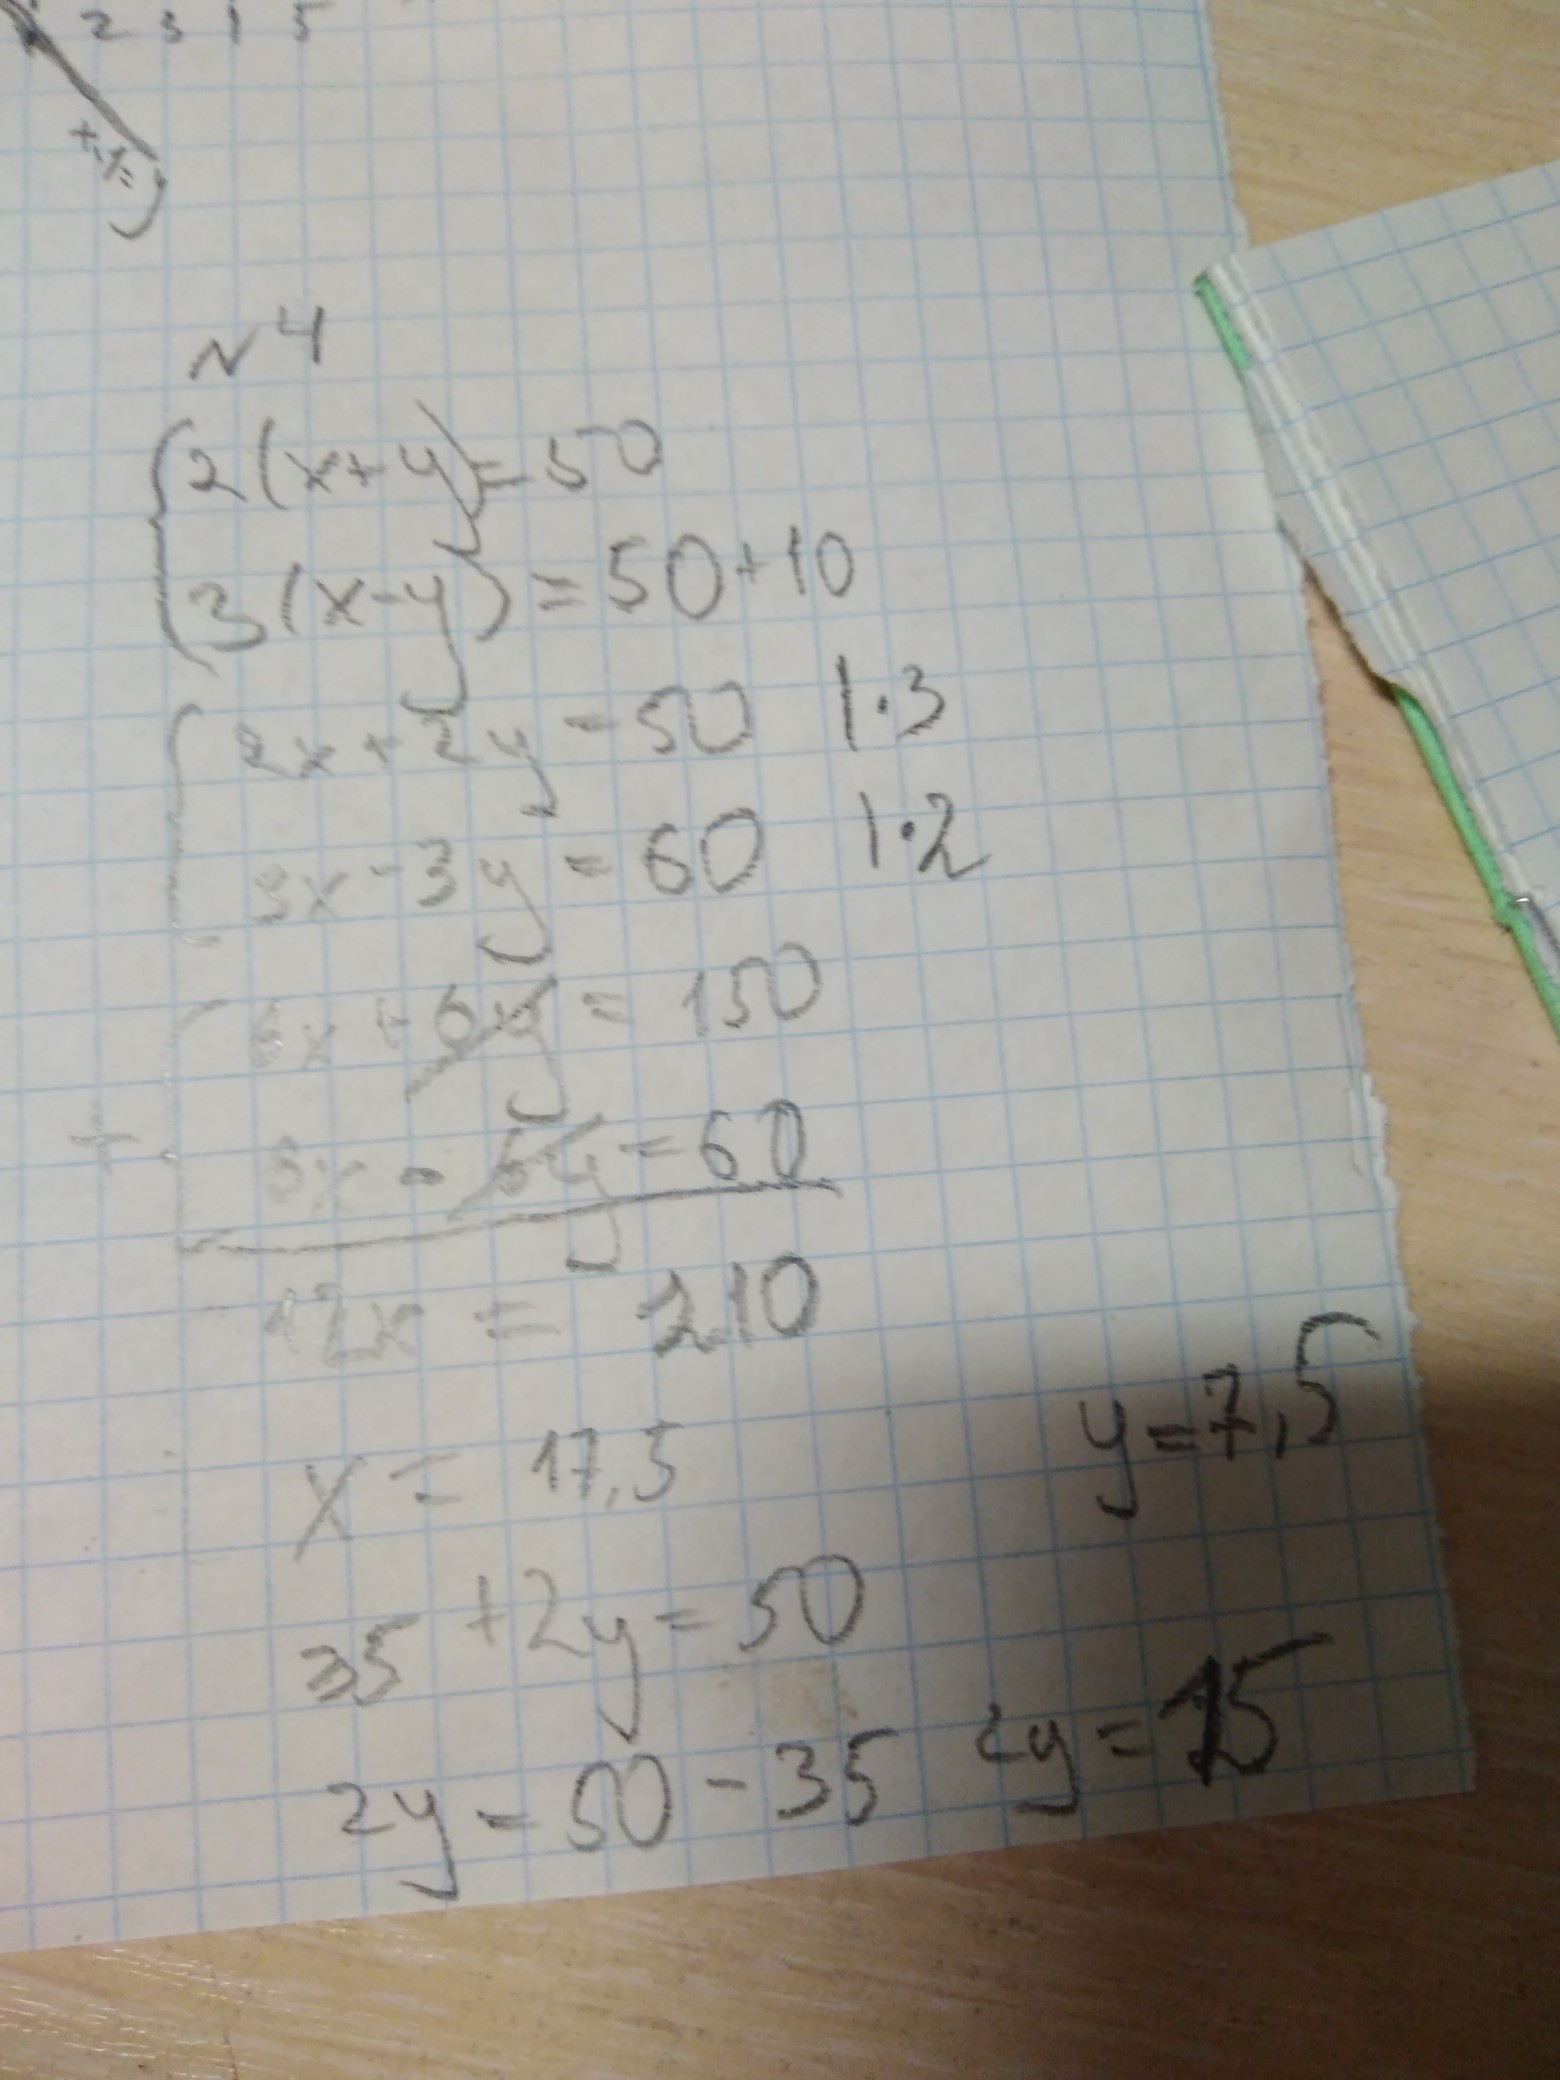 2 3 1 5
№4
2(x+y)=50
3(x-y)=50+10
2x+2y=50 |·3
3x-3y=60 |·2
6x+6y=150
+ 6x-6y=60
12x=210
x=17,5
y=7,5
35+2y=50
2y=50-35 2y=15